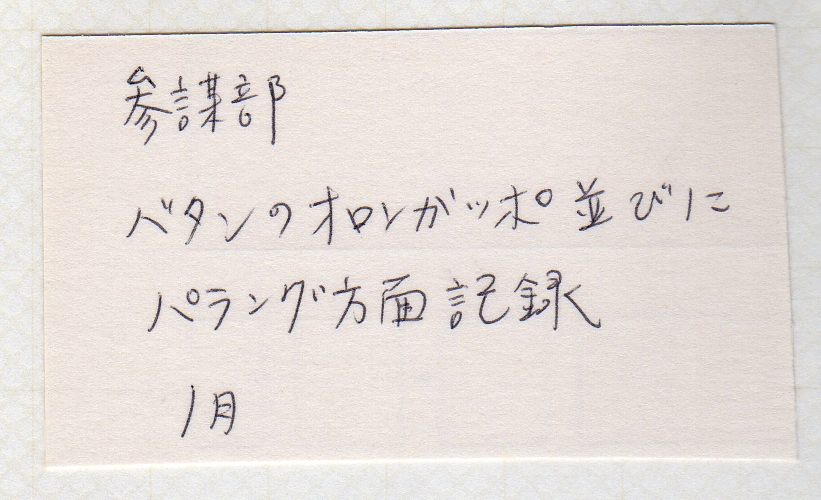 参謀部
バタンのオロンガッポ並びに
パラング方面記録
1月